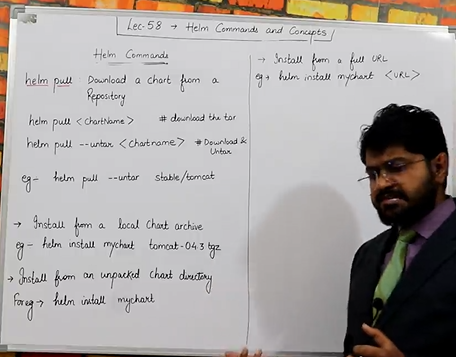 Lec-58 → Helm Commands and Concepts
Helm Commands
helm pull : Download a chart from a
Repository
helm pull <ChartName> # download the tar
helm pull --untar <Chartname> # Download &
Untar
eg- helm pull --untar stable/tomcat
→ Install from a local Chart archive
eg- helm install mychart tomcat-0.4.3.tgz
→ Install from an unpacked chart directory
Foreg → helm install mychart
→ Install from a full URL
eg → helm install mychart <URL>